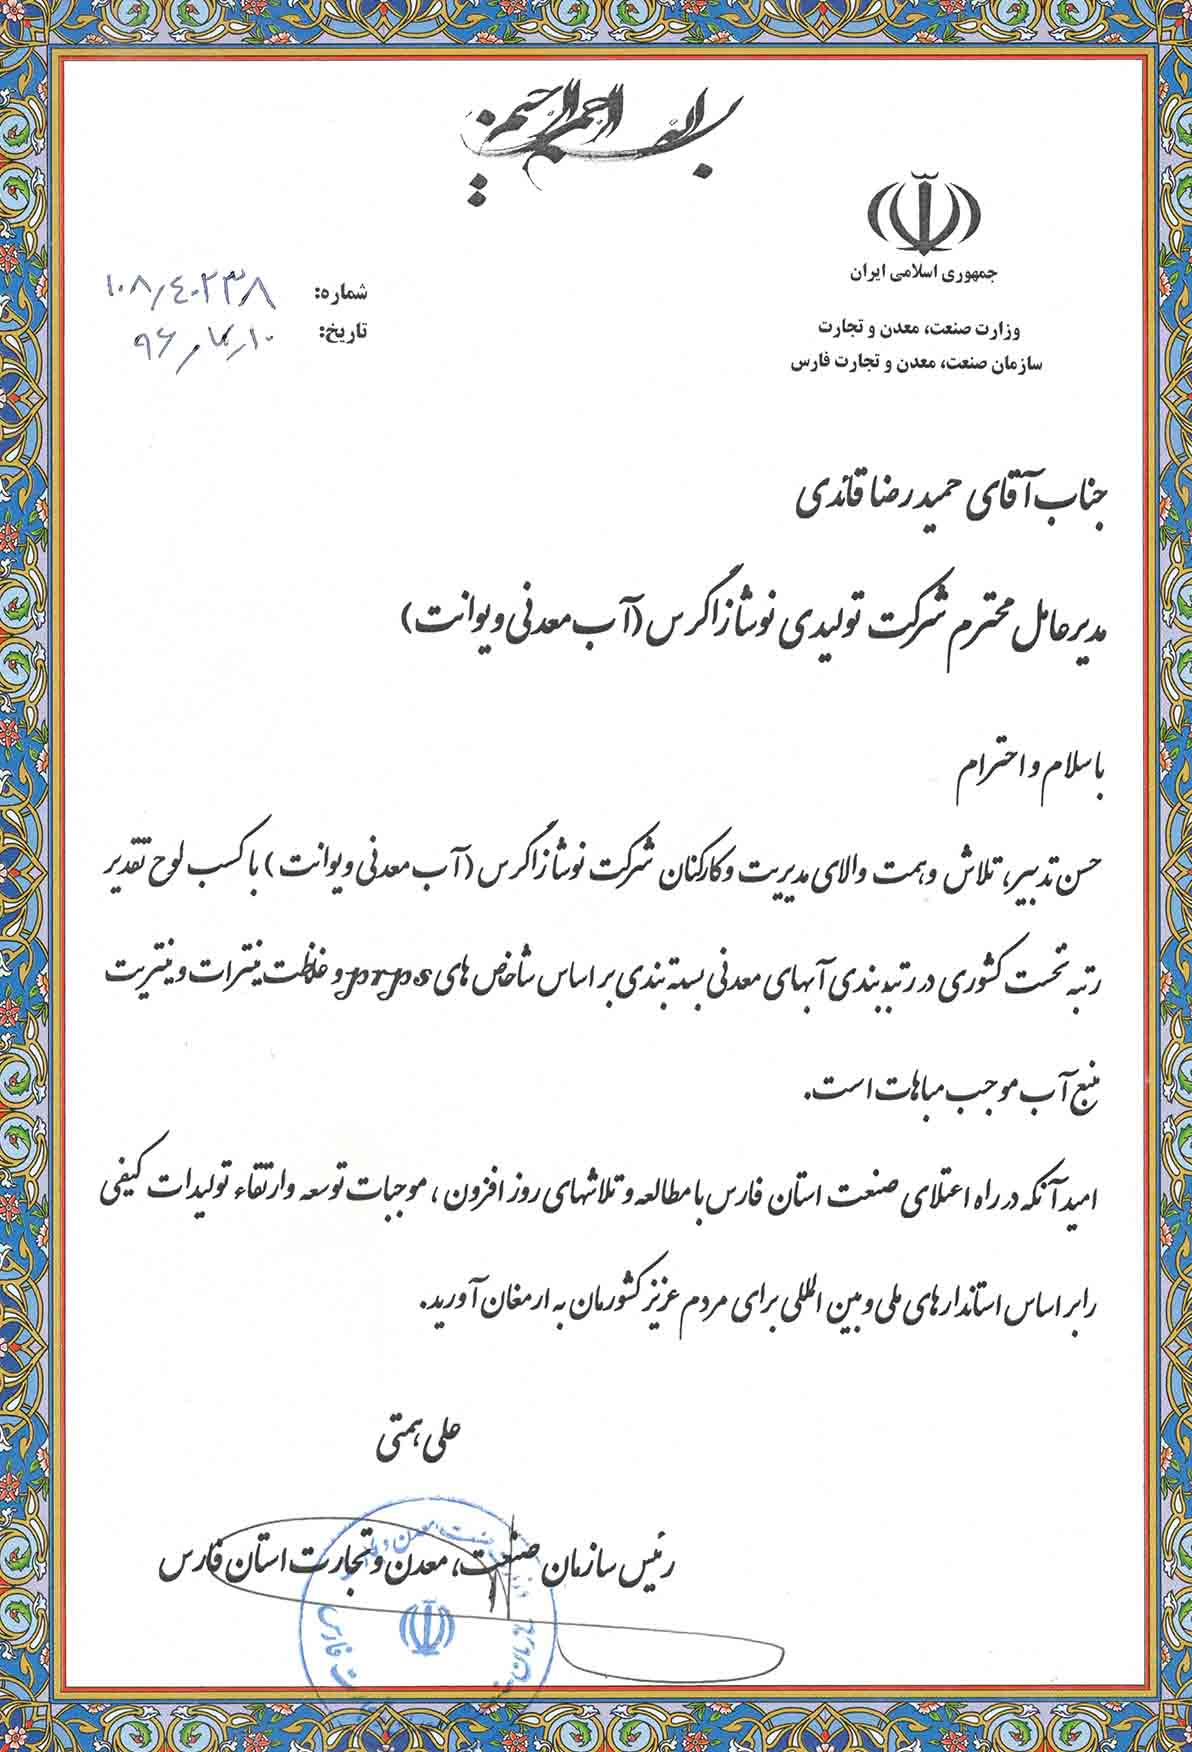 بسم الله الرحمن الرحیم
جمهوری اسلامی ایران
وزارت صنعت، معدن و تجارت
سازمان صنعت، معدن و تجارت فارس
شماره: ۱۰۸٫۴۰۲۳۸
تاریخ: ۹۶
جناب آقای حمیدرضا قائدی
مدیرعامل محترم شرکت تولیدی نوشاز اگرس (آب معدنی ویوانت)
با سلام و احترام
حسن تدبیر، تلاش و همت والای مدیریت و کارکنان شرکت نوشاز اگرس (آب معدنی ویوانت) با کسب لوح تقدیر
رتبه نخست کشوری در رتبه بندی آبهای معدنی بسته بندی بر اساس شاخص های prps و غلظت نیترات و نیتریت
منبع آب موجب مباهات است.
امید آنکه در راه اعتلای صنعت استان فارس با مطالعه و تلاشهای روز افزون، موجبات توسعه و ارتقاء تولیدات کیفی
را بر اساس استاندارهای ملی و بین المللی برای مردم عزیز کشورمان به ارمغان آورید.
علی همتی
رئیس سازمان صنعت، معدن و تجارت استان فارس